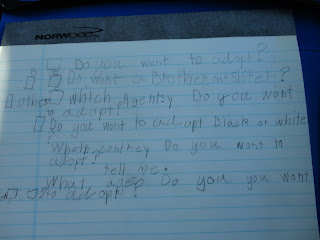 NORWOOD
Do you want to adopt?
Do want a Brother or sister?
other which Do you want
to adopt?
Do you want to adopt Black or white
?
What country Do you want to
adopt?
tell me.
What Do you you want
to adopt?